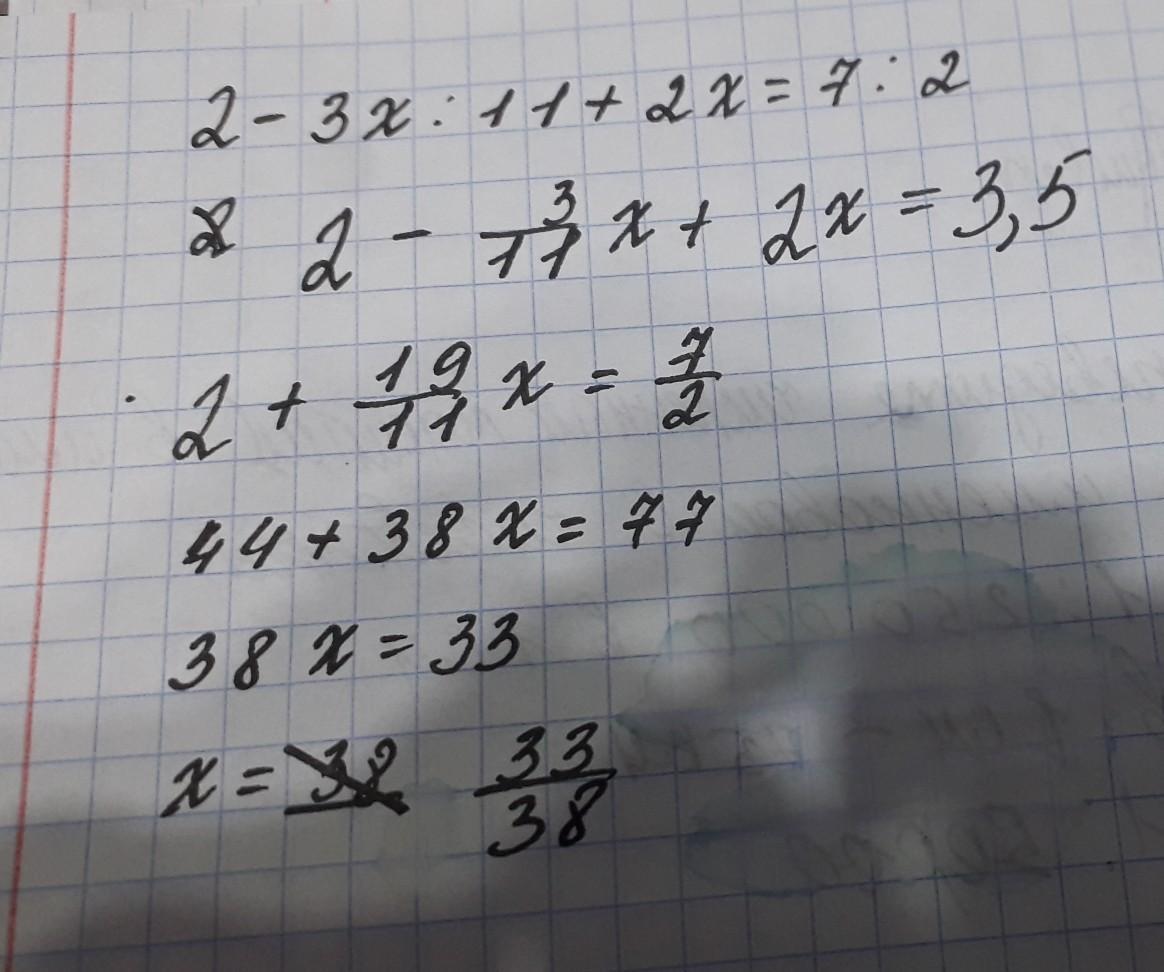 2 - 3x : 11 + 2x = 7 : 2
2 - 3/11 x + 2x = 3,5
2 + 19/11 x = 7/2
44 + 38 x = 77
38 x = 33
x = 33/38